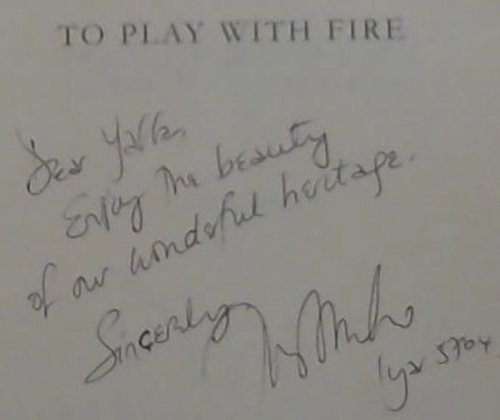 TO PLAY WITH FIRE
Dear Yaffa,
Enjoy the beauty
of our wonderful heritage.
Sincerely
Iyar 5764